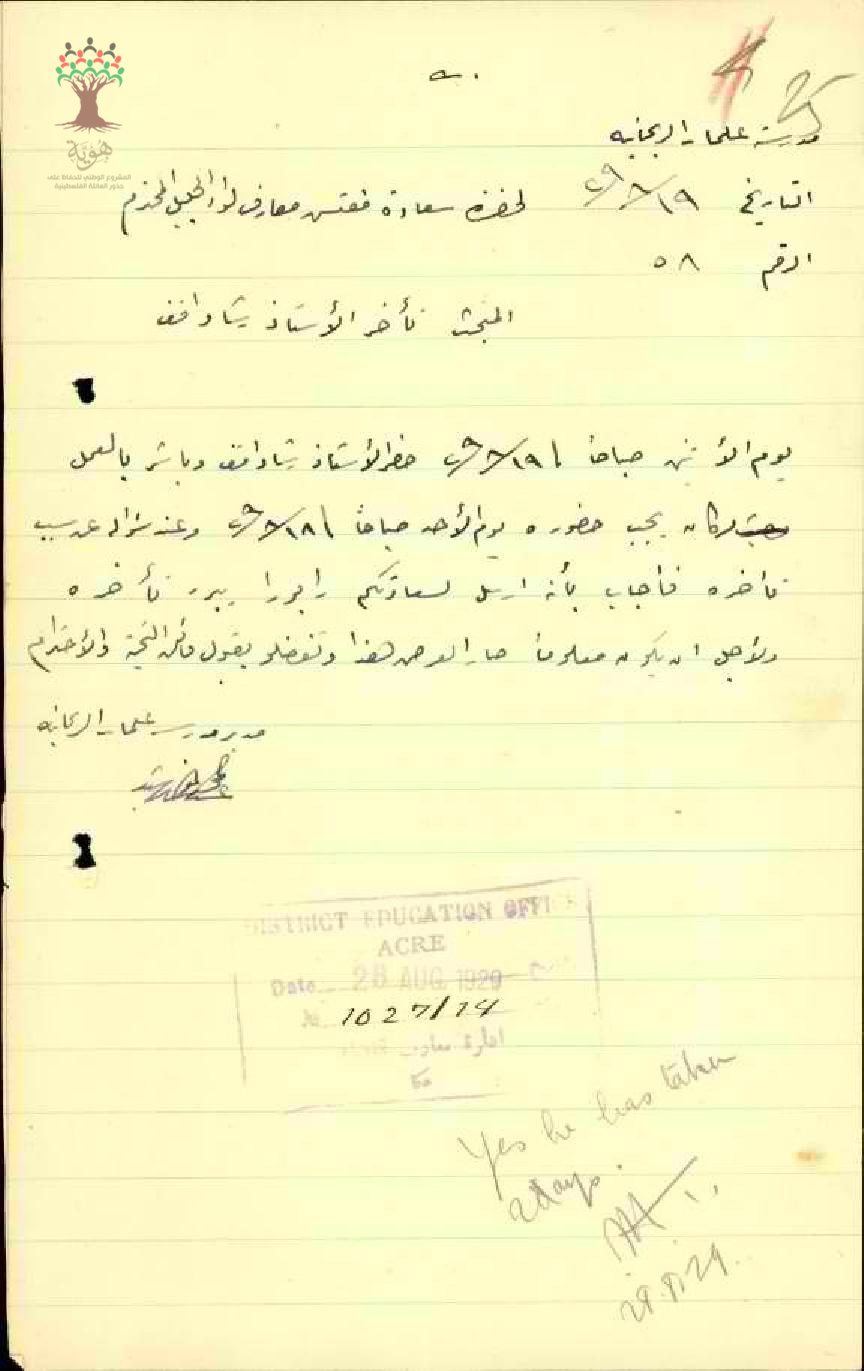 هوية
المشروع الوطني للحفاظ على
جذور العائلة الفلسطينية
مدرسة علمار الريحانيه
التاريخ ١٩/٨/٢٩
لحضرة سعادة مفتش معارف لواء الجليل المحترم
الرقم ٥٨
المبحث تأخر الأستاذ
يوم الأثنين صباحاً ١٩/٨/٢٩ حضر الأستاذ وباشر بالعمل
وكان يجب حضوره يوم الأحد صباحاً ١٨/٨/٢٩ وعند سؤاله عن سبب
تأخره فأجاب بأنه ارسل لسعادتكم رابورا يبرر تأخره
ولأجل ان يكون معلوماً صار العرض هذا وتفضلو بقبول فائق التحية والأحترام
مدير مدرسة علمار الريحانيه
DISTRICT EDUCATION OFFICE
ACRE
Date 28 AUG 1929
No 1027/14
ادارة معارف
عكا
Yes he has taken
2 days.
28.8.29.